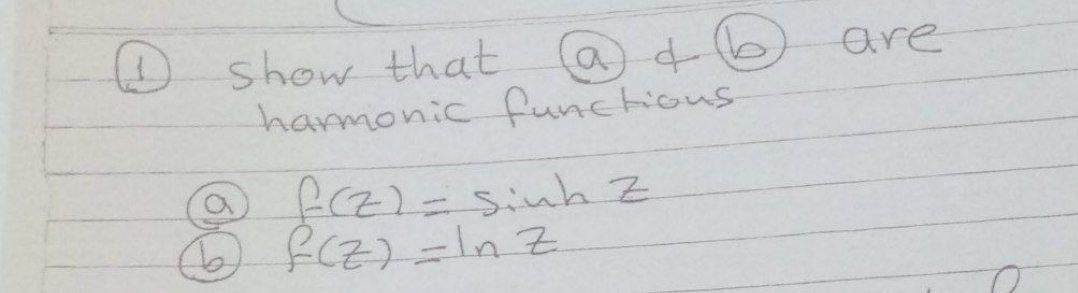 ① show that ⓐ & ⓑ are
harmonic functions
ⓐ f(z) = sinh z
ⓑ f(z) = ln z